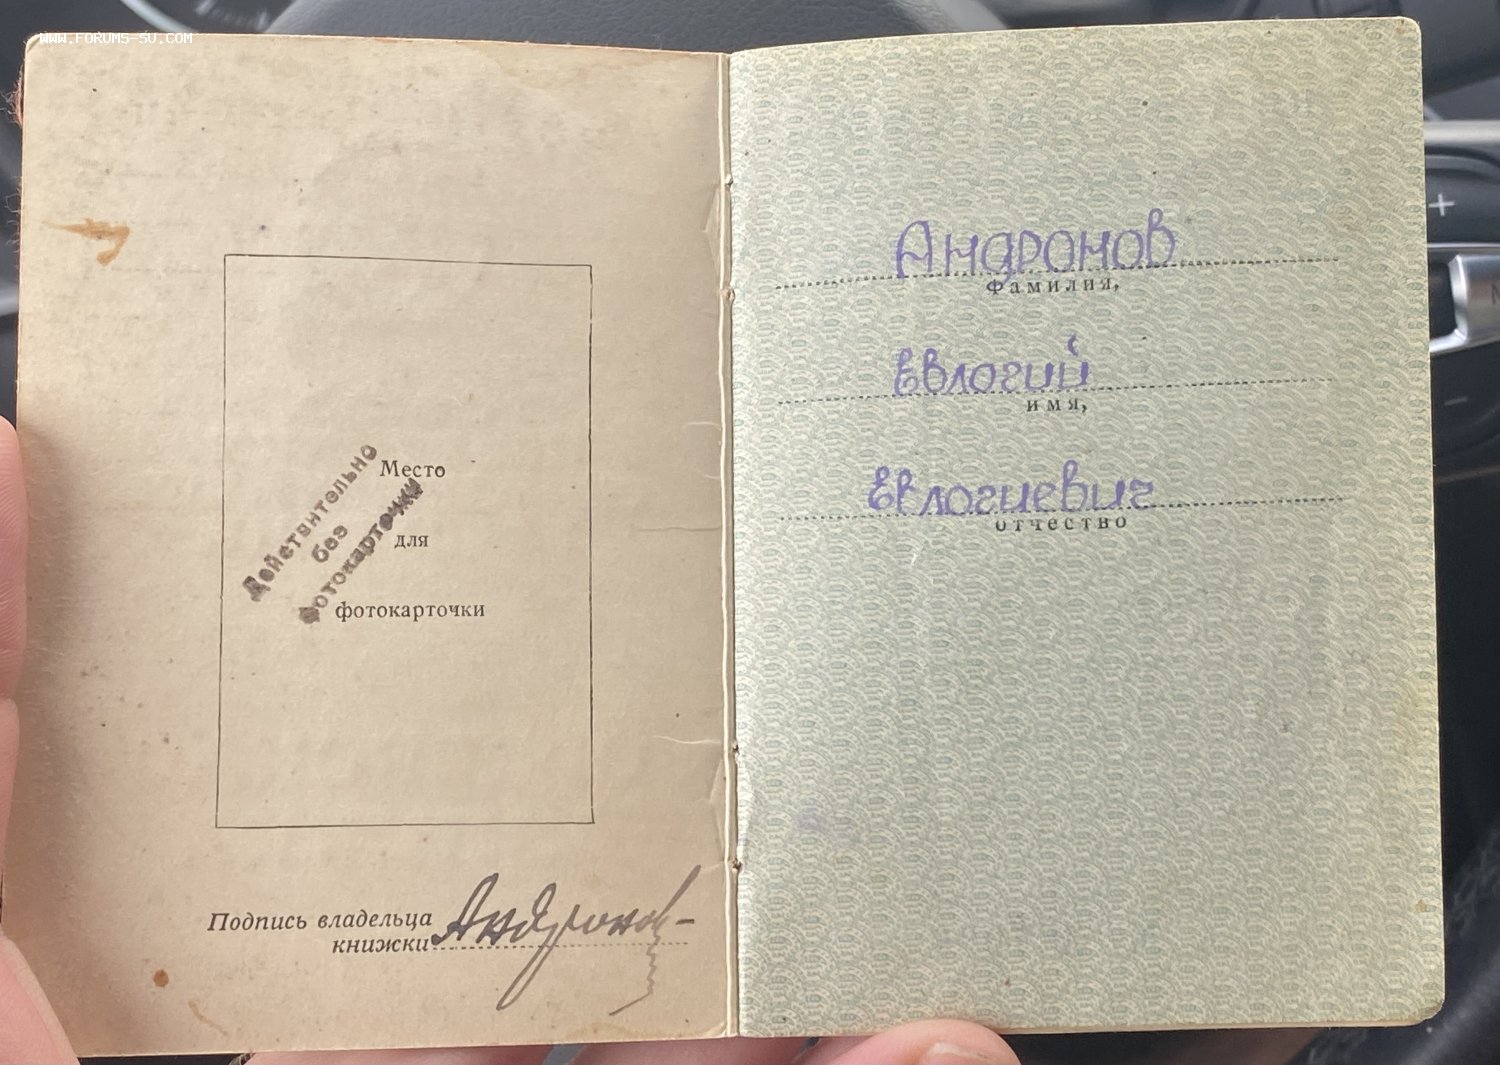 WWW.FORUMS-SU.COM
Место
для
фотокарточки
Действительно
без
фотокарточки
Подпись владельца
книжки Андронов
Андронов
Фамилия,
Евлогий
имя,
Евлогиевич
отчество
+